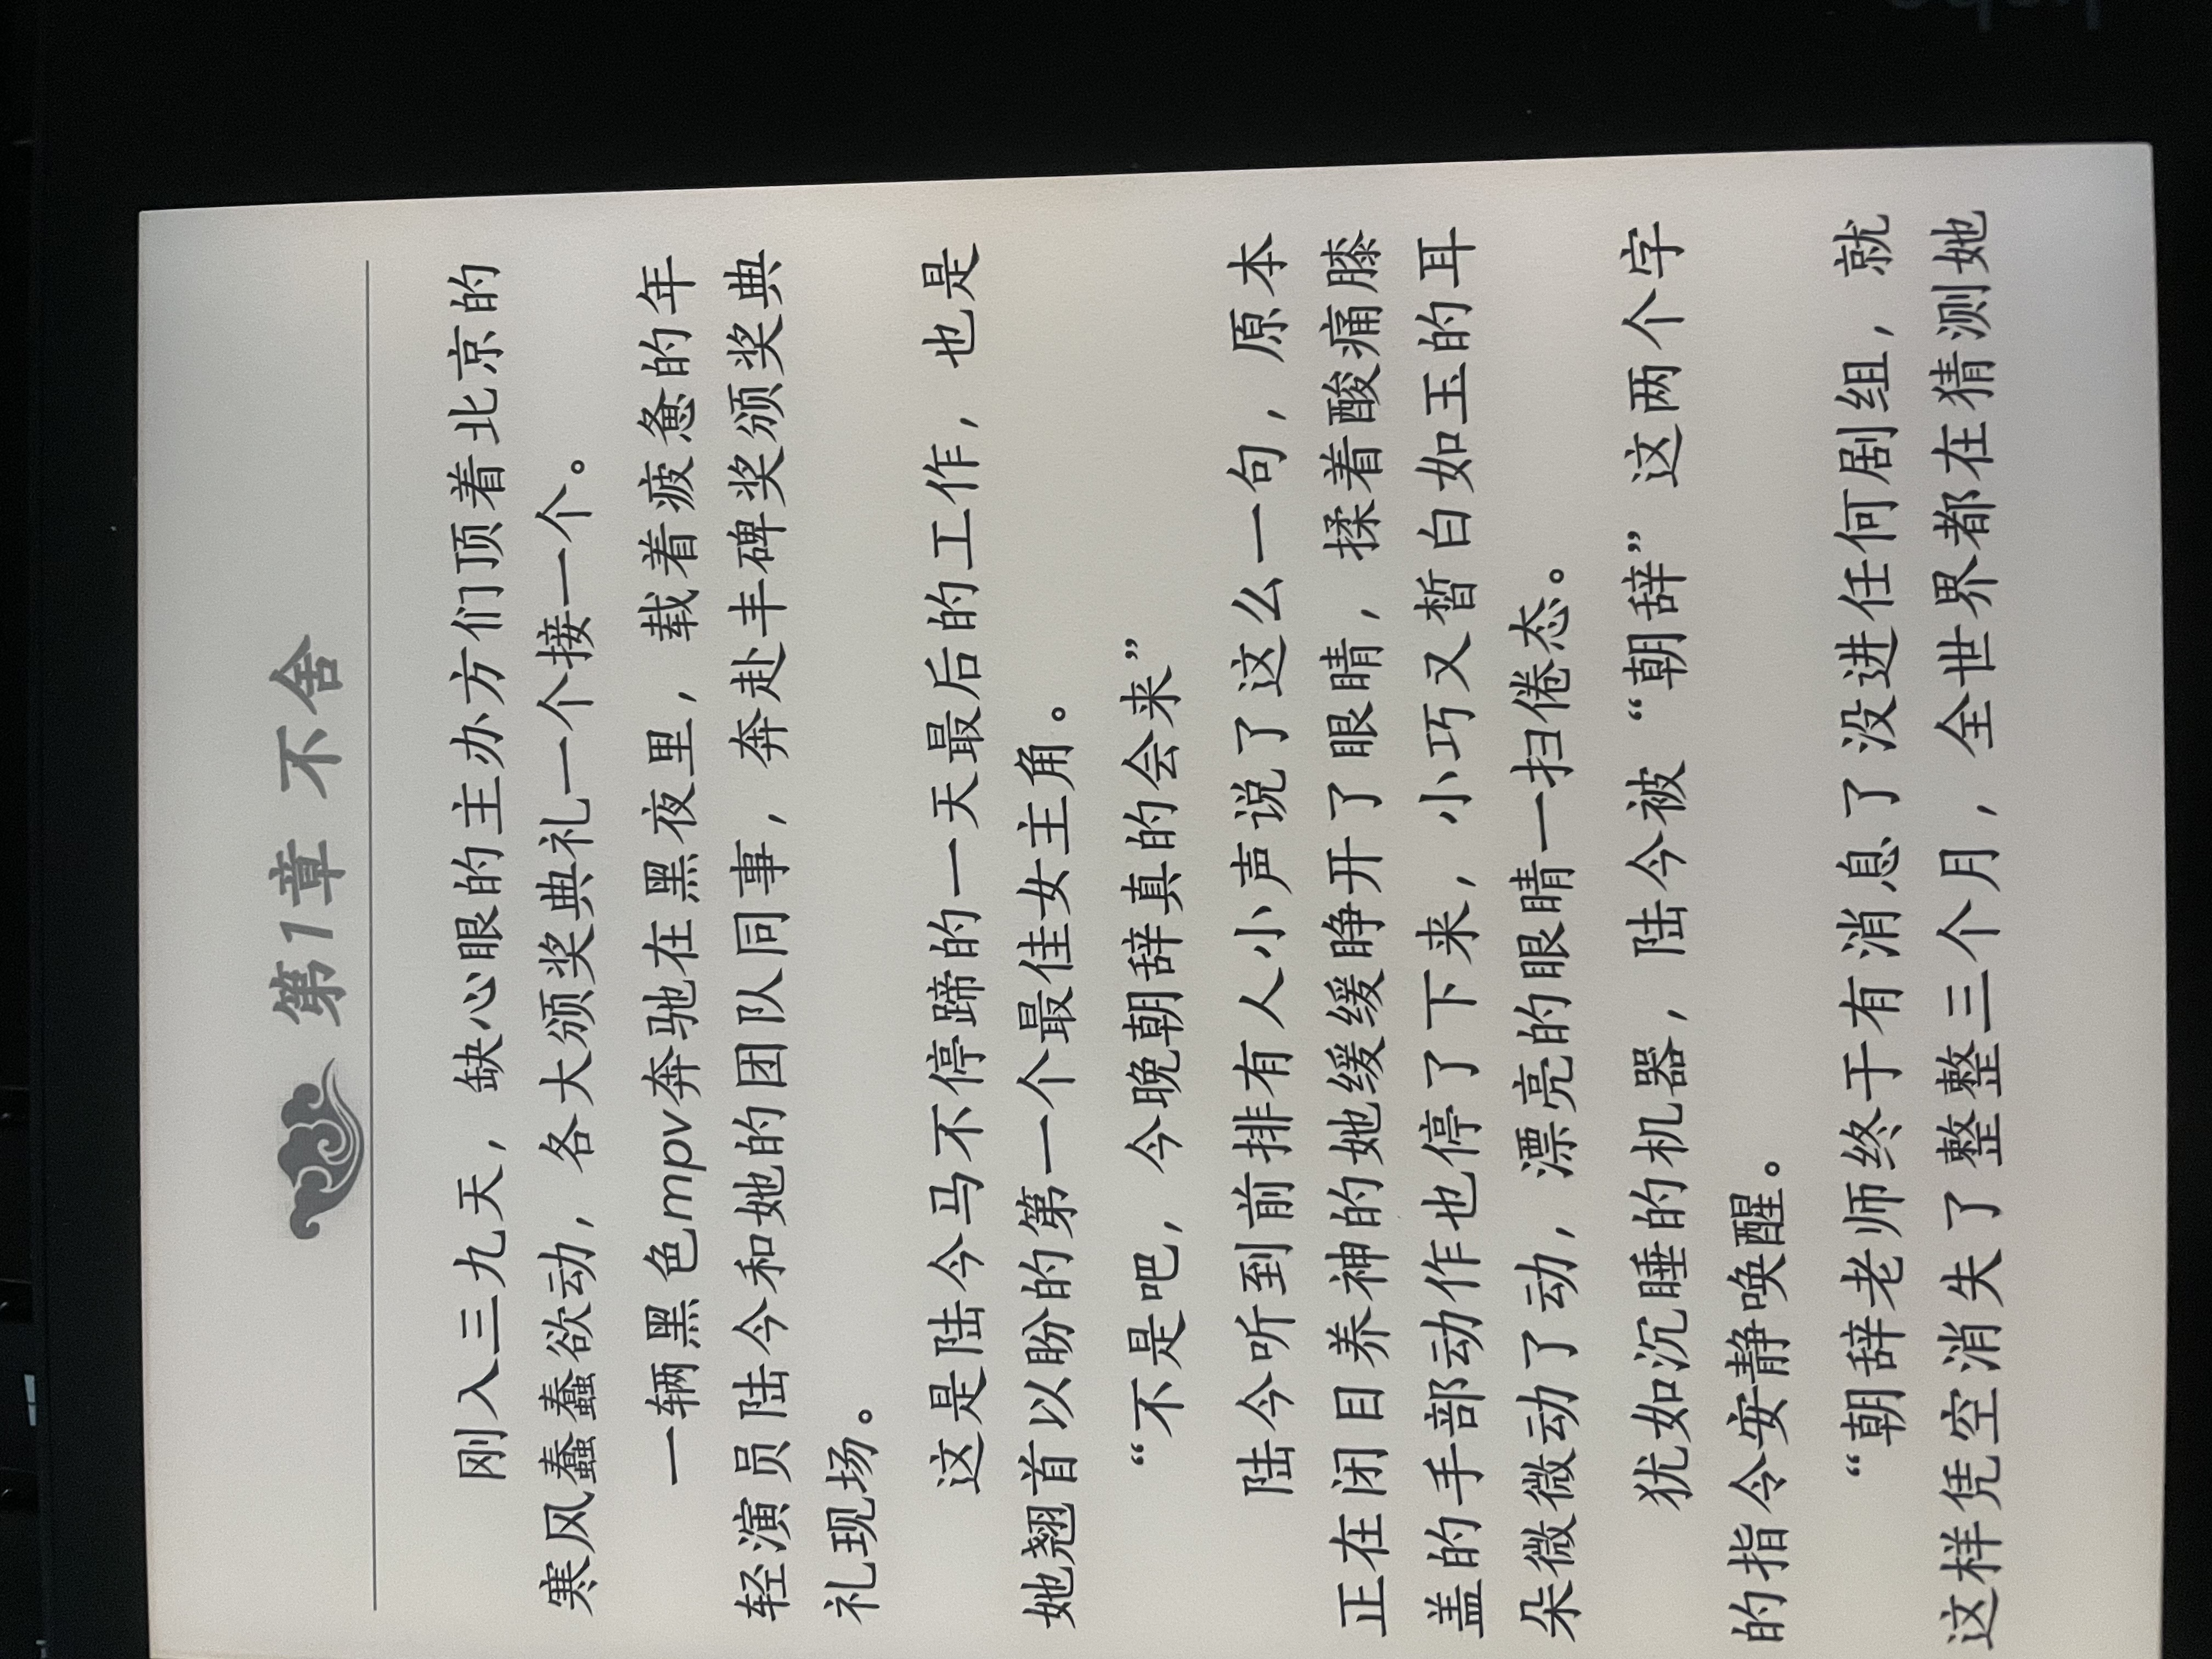 第1章 不舍
刚入三九天，缺心眼的主办方们顶着北京的
寒风蠢蠢欲动，各大颁奖典礼一个接一个。
一辆黑色mpv奔驰在黑夜里，载着疲惫的年
轻演员陆今和她的团队同事，奔赴丰碑奖颁奖典
礼现场。
这是陆今马不停蹄的一天最后的工作，也是
她翘首以盼的第一个最佳女主角。
“不是吧，今晚朝辞真的会来”
陆今听到前排有人小声说了这么一句，原本
正在闭目养神的她缓缓睁开了眼睛，揉着酸痛膝
盖的手部动作也停了下来，小巧又皙白如玉的耳
朵微微动了动，漂亮的眼睛一扫倦态。
犹如沉睡的机器，陆今被“朝辞”这两个字
的指令安静唤醒。
“朝辞老师终于有消息了没进任何剧组，就
这样凭空消失了整整三个月，全世界都在猜测她